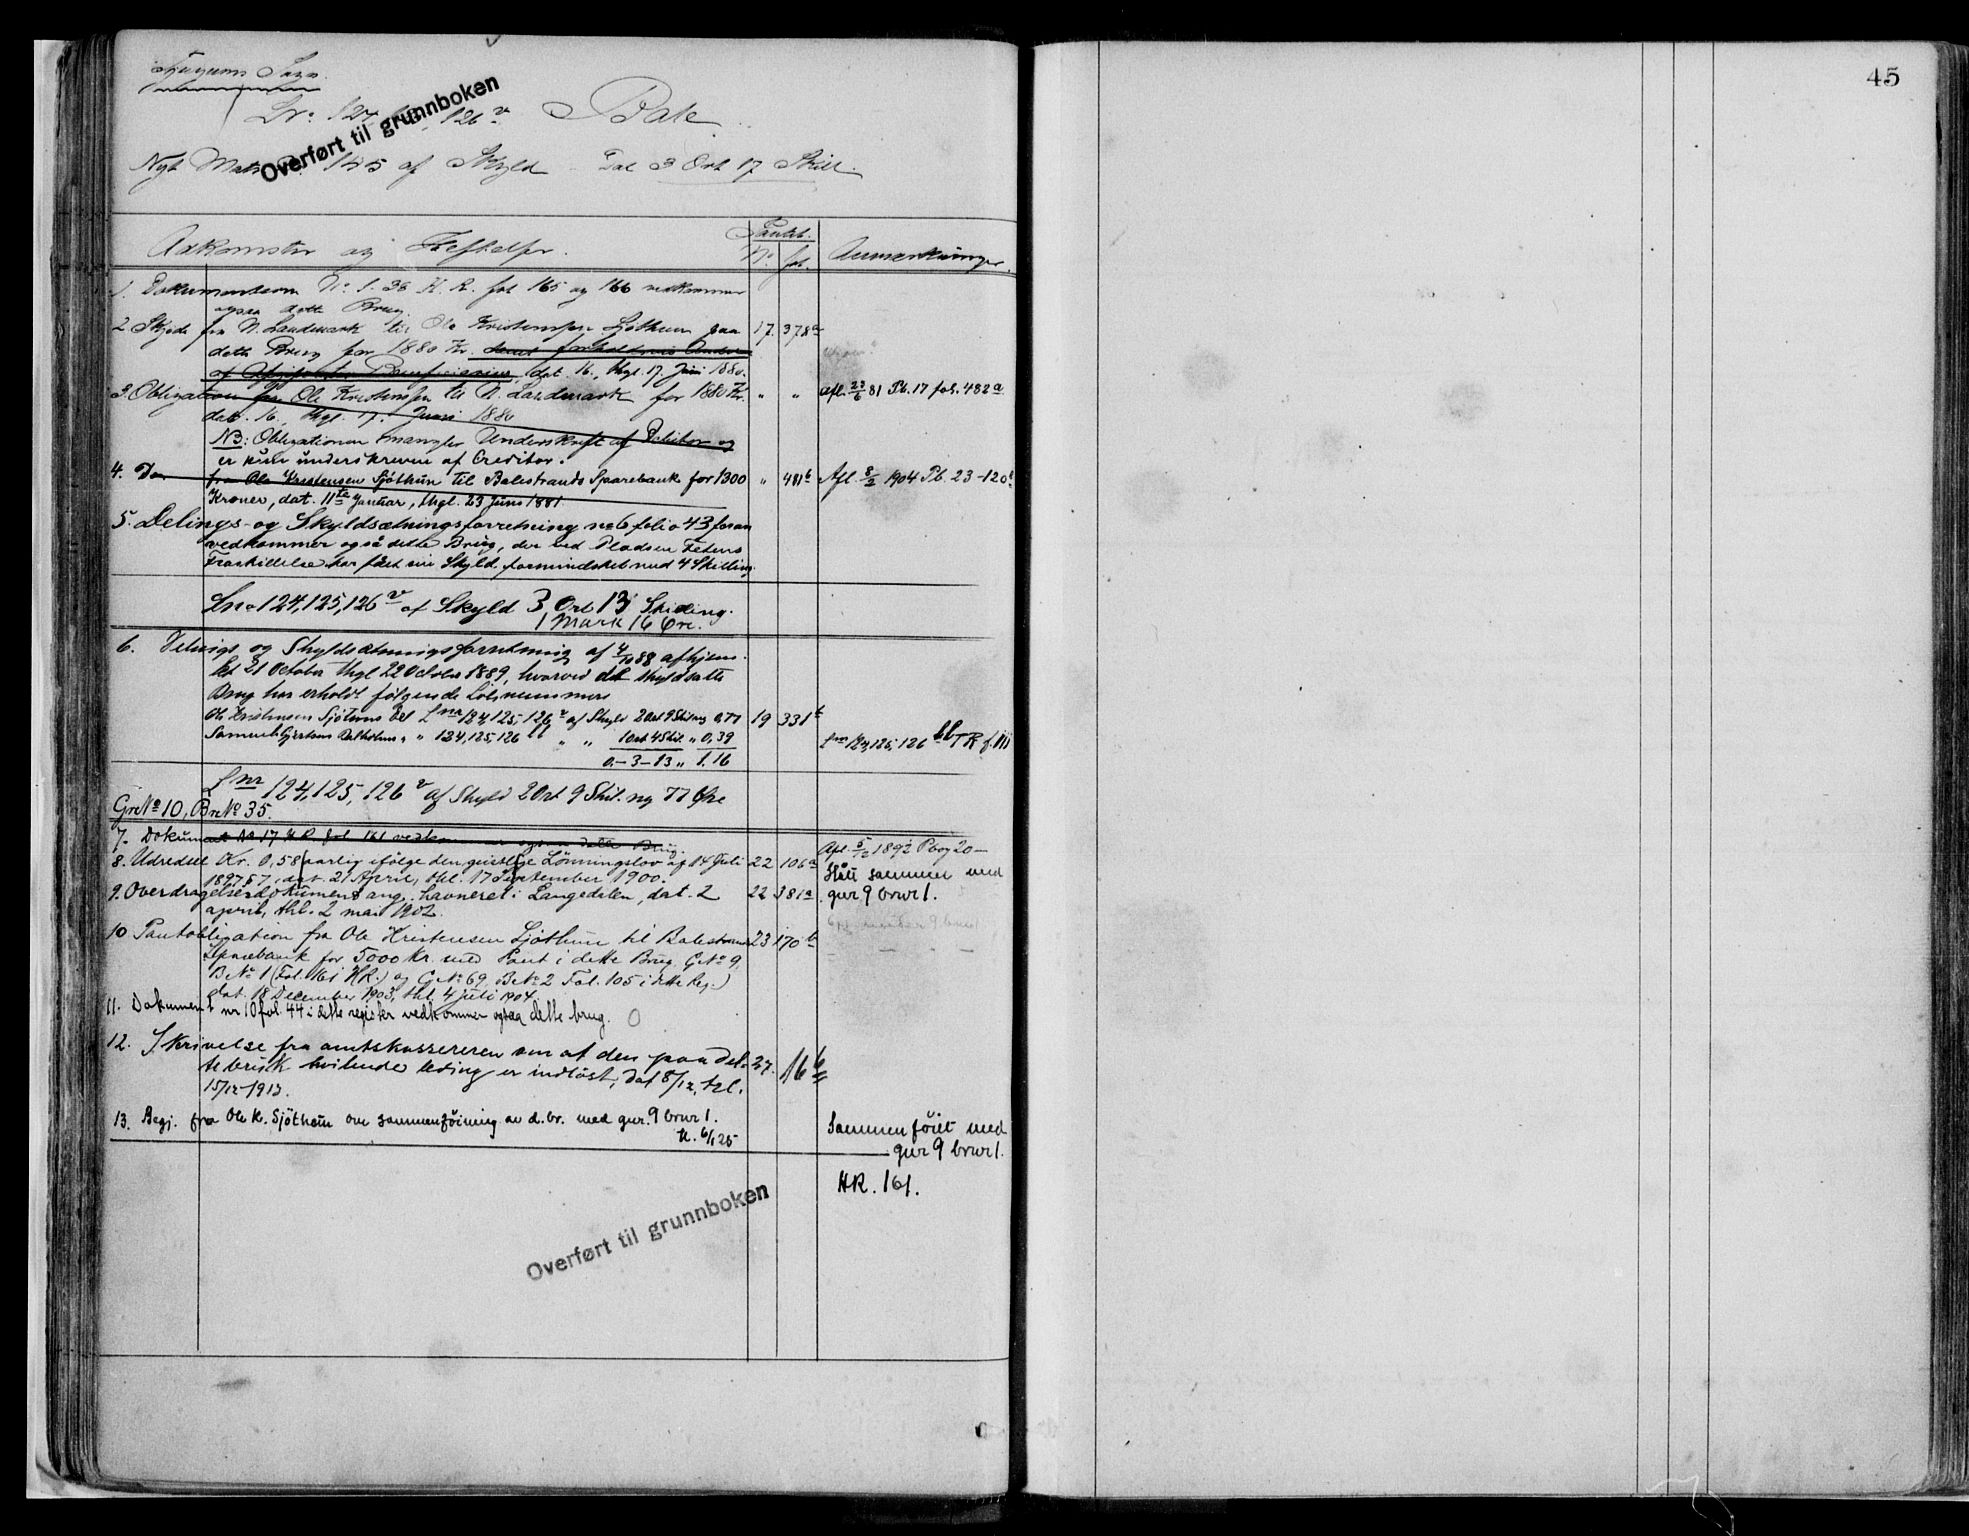 Tjugums Sogn.
Lno 124, 125, 126 v. Bale
Overført til grunnboken
Nyt Matr. 155 af Skyld Dal 3 Ort 17 Skill.
Adkomster og Heftelser.
Pantb.
No. fol.
Anmærkninger.
1. Dokumenterne No 1-38 H. R. fol 165 og 166 vedkommer
ogsaa dette Brug.
2 Skjøde fra N. Landmark til Ole Kristensen Sjøthun paa 17. 378a
dette Brug for 1880 Kr.
dat. 16., thgl. 17. Juni 1880.
3. Obligation fra Ole Kristensen til N. Landmark for 1880 Kr. " " Afl. 23/6 81 Pb. 17 fol. 482a
dat. 16, thgl. 17. Juni 1880
NB: Obligationen mangler Underskrift af Debitor og
er kun underskreven af Creditor.
4. Do fra Ole Kristensen Sjøthun til Balestrands Sparebank for 1300 " 481b Afl. 8/2 1904 Pb. 23-120
Kroner, dat. 11te Januar, thgl. 23 Juni 1881.
5. Delings- og Skyldsætningsforretning no 6 folio 43 foran
vedkommer også dette Brug, der ved Pladsen Fetens
Fraskillelse har fået sin Skyld formindsket med 4 Skilling.
Lno 124, 125, 126 v af Skyld 3 Ort 13 Skilling.
1 Mark 16 Øre.
6. Delnigs og Skyldsætningsforretning af 4/10 88 afhjem-
let 21 October thgl 22 October 1889, hvorved det skyldsatte
Brug har erholdt følgende Løbenummere
Ole Kristensen Sjøthuns Del Lnr 124, 125, 126 v af Skyld 2 Ort 9 Skil. ny 0,77 19 331b
Samuel Gjertsens " 124, 125, 126 bb " " 1 Ort 4 Skil " 0,39 Lnr 124, 125, 126 bb TR f. 111
0-3-13 " 1.16
Lnr 124, 125, 126 v af Skyld 2 Ort 9 Skil. ny 77 Øre
Gr No 10, Br No 35.
7. Dokument No 17 H. R. fol 161 vedkommer ogsaa dette Brug. Afl. 5/12 1892 Pbog 20-
8. Udredsel Kr. 0,58 aarlig ifølge den geistlige Lønningslov af 14 Juli 22 106a Slåt sammen med
1897 § 7, dat. 21 April, thl. 17 September 1900.
9. Overdragelsesdokument ang. havneret i Langedalen, dat. 2 22 381a gnr 9 brnr 1.
april, thl. 2 mai 1902.
10 Pantobligation fra Ole Kristensen Sjøthun til Balestrands 23 170b
Sparebank for 5000 Kr. med Pant i dette Brug, G No 9,
B No 1 (Fol. 161 HR.) og G No 69, B No 2 Fol. 105 i dette Reg.)
dat. 18 December 1903, thl. 4 Juli 1904.
11. Dokument nr 10 fol. 44 i dette register vedkommer ogsaa dette brug.
12. Skrivelse fra amtskassereren om at den paa det- 27. 16b
te bruk hvilende leding er indløst, dat 8/12, tgl.
15/12-1913.
13. Begj. fra Ole K. Sjøthun om sammenføining av d. br. med gnr. 9 brnr 1. Sammenføiet med
tl. 6/1 25 gnr 9 brnr 1.
HR. 161.
Overført til grunnboken
45